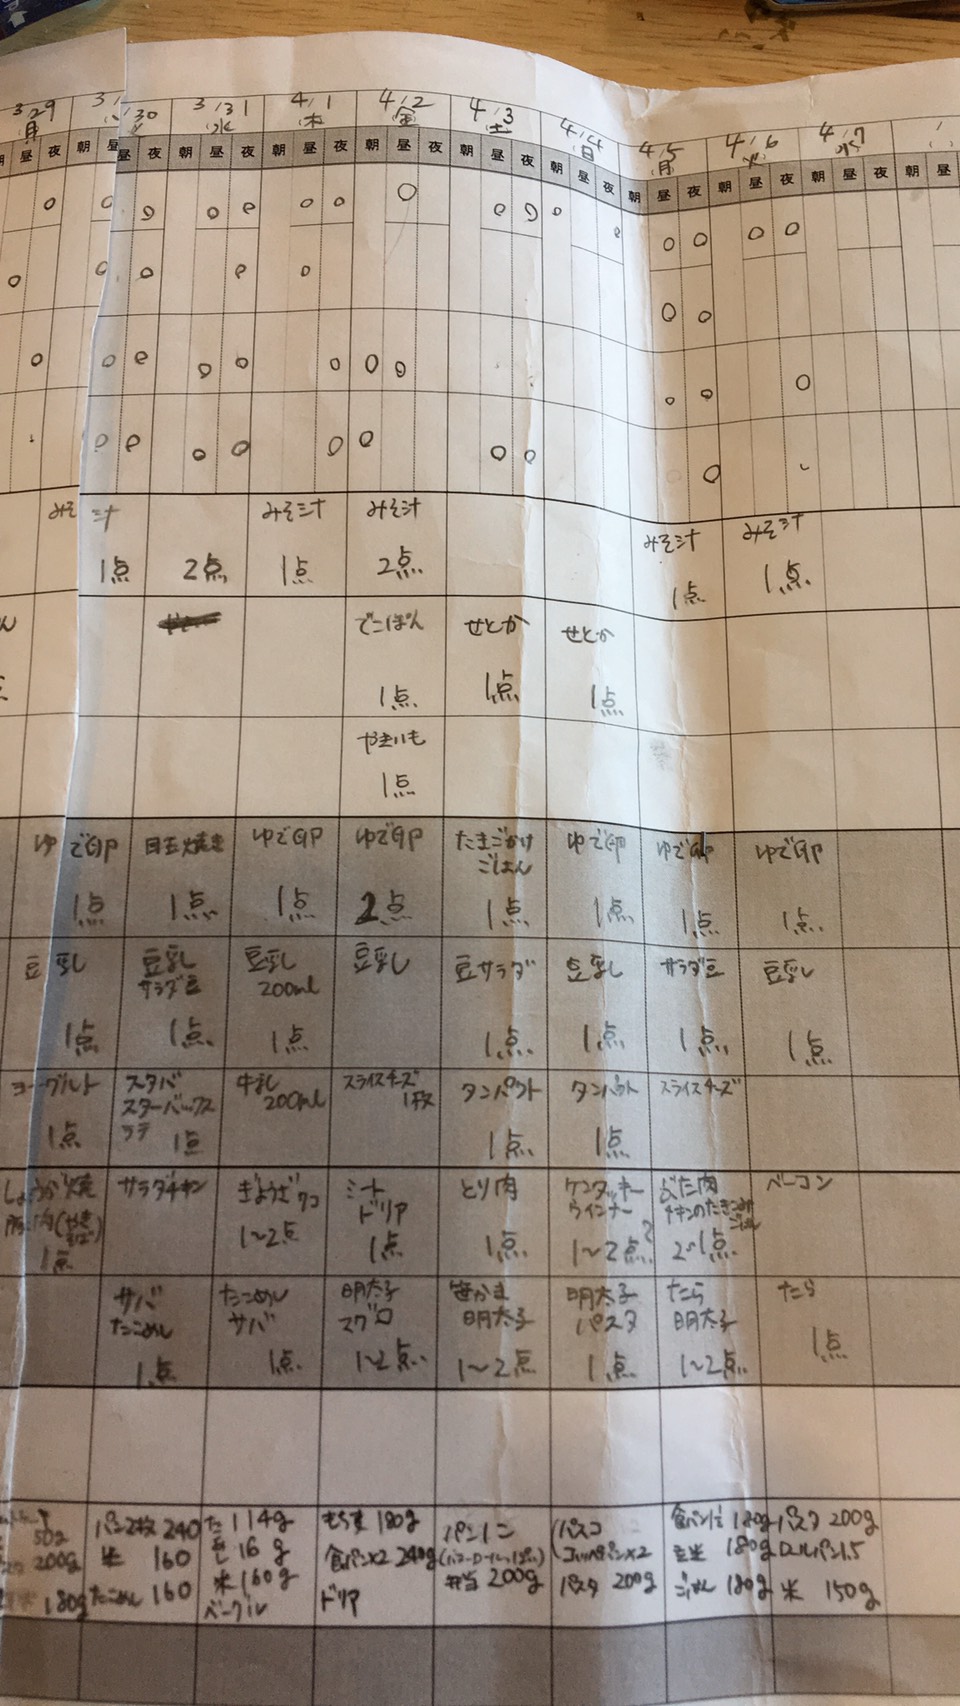 3/29 3/30 3/31 4/1 4/2 4/3 4/4 4/5 4/6 4/7
月 水 木 金 土 日 月 火 水
昼 夜 朝 昼 夜 朝 昼 夜 朝 昼 夜 朝 昼 夜 朝 昼 夜 朝 昼 夜 朝 昼 夜 朝 昼 夜 朝 昼 夜 朝 昼
みそ汁 みそ汁 みそ汁 みそ汁 みそ汁
1点 2点 1点 2点 1点 1点
でこぽん せとか せとか
1点 1点 1点
やきいも
1点
ゆで卵 目玉焼き ゆで卵 ゆで卵 たまごかけ ゆで卵 ゆで卵 ゆで卵
ごはん
1点 1点 1点 2点 1点 1点 1点 1点
豆乳 豆乳 豆乳 豆乳 豆サラダ 豆乳 サラダ豆 豆乳
サラダ豆 200ml
1点 1点 1点 1点 1点 1点 1点
ヨーグルト スタバ 牛乳 スライスチーズ タンパクト タンパクト スライスチーズ
スターバックス 200ml 1枚
ラテ
1点 1点 1点 1点
しょうが焼 サラダチキン ぎょうざ ミート とり肉 ケンタッキー ぶた肉 ベーコン
ドリア ウインナー チキンのたきこみ
ごはん
1点 1〜2点 1点 1点 1〜2点? 2〜1点
サバ たこめし 明太子 笹かま 明太子 たら たら
たこめし サバ マグロ 明太子 パスタ 明太子
1点 1点 1〜2点 1〜2点 1点 1〜2点 1点
50g パン2枚 240 114g 180g パン パスコ 食パン 180g パスタ 200g
200g 米 160 16g 食パン×2 240g ×2 玄米 180g ロールパン1.5
180g たこめし 160 米160g ドリア 弁当 200g パスタ 200g ごはん 180g 米 150g
ベーグル